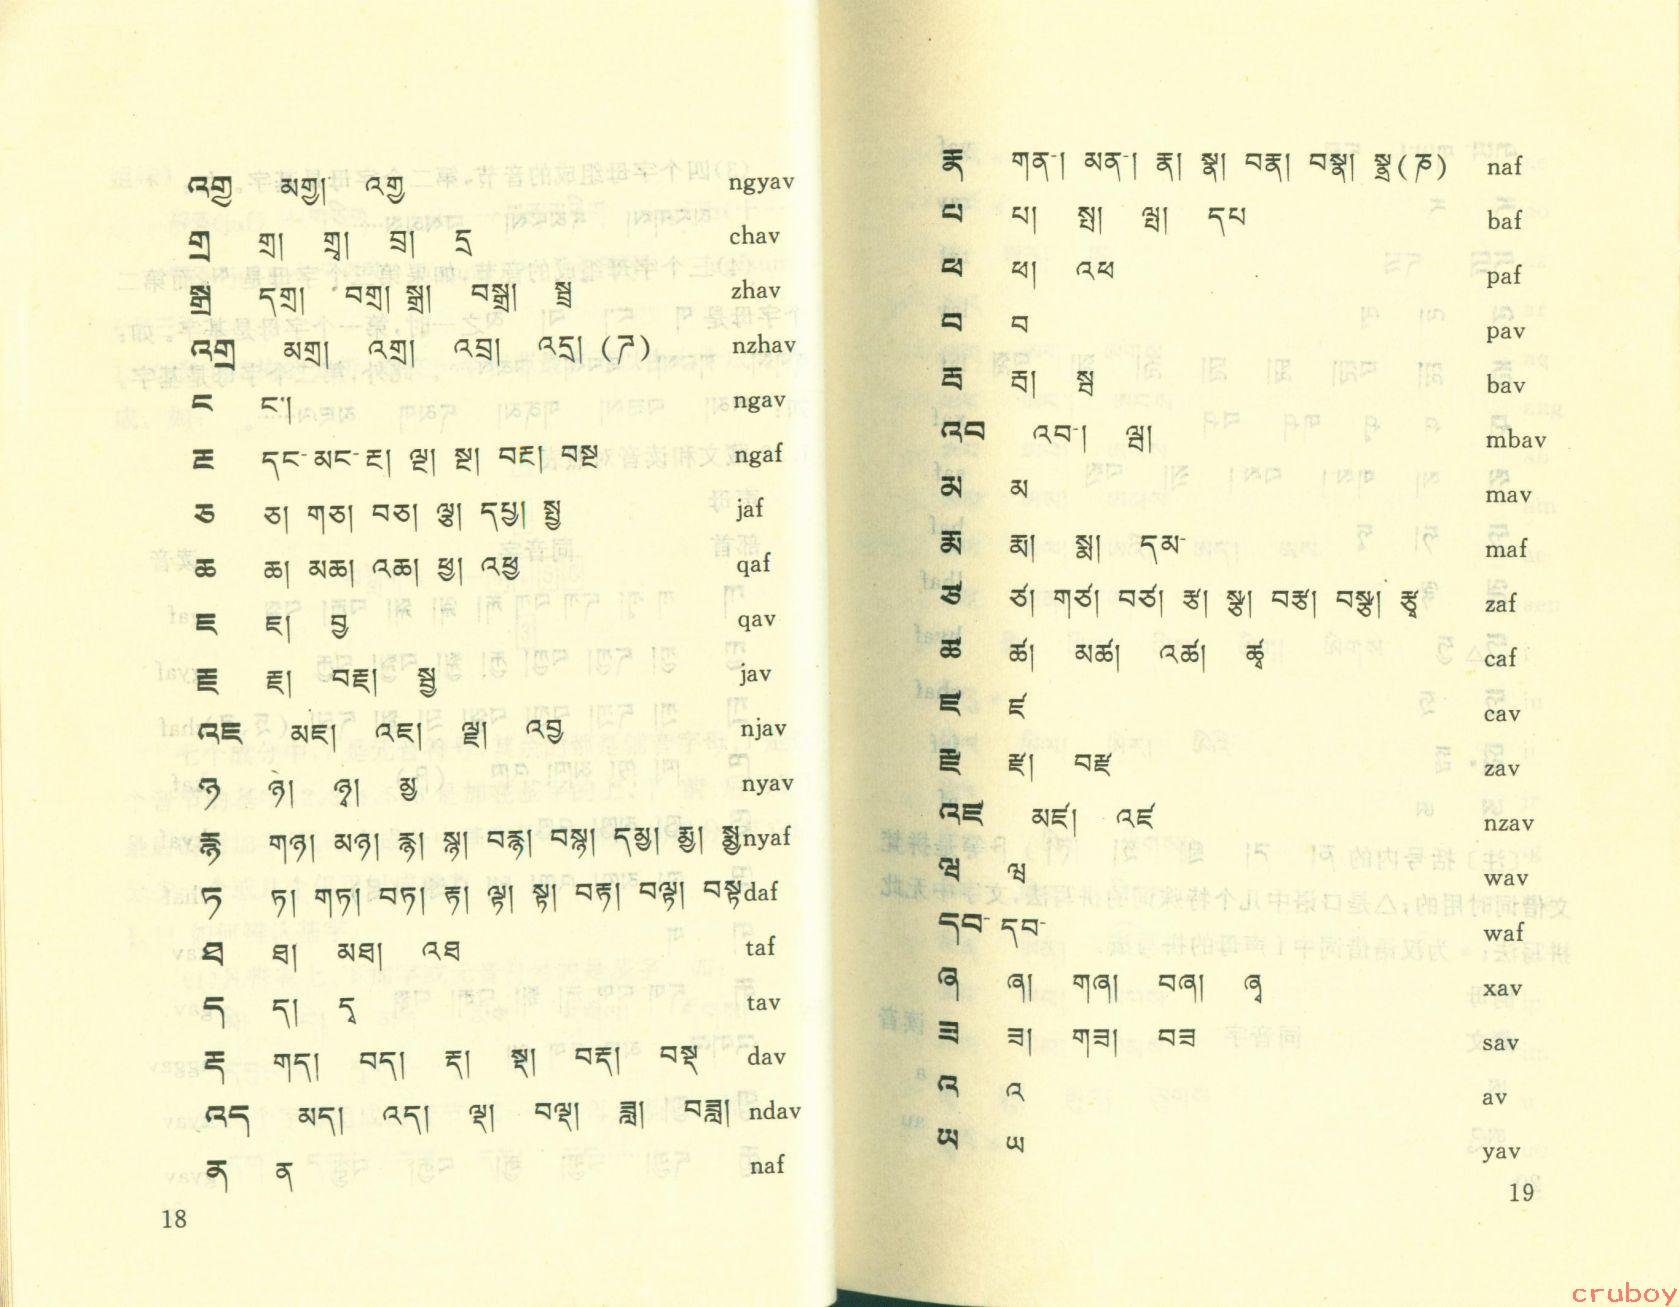 འགྱ མགྱ། འགྱ ngyav
གྲ གྲ། གྲྭ། བྲ། དྲ chav
སྒྲ དགྲ། བགྲ། སྒྲ། བསྒྲ། སྦྲ zhav
འགྲ མགྲ། འགྲ། འབྲ། འདྲ། (ཌ) nzhav
ང ང་། ngav
རྔ དང་ མང་ རྔ། ལྔ། སྔ། བརྔ། བསྔ ngaf
ཅ ཅ། གཅ། བཅ། ལྕ། དཔྱ། སྤྱ jaf
ཆ ཆ། མཆ། འཆ། ཕྱ། འཕྱ qaf
ཇ ཇ། བྱ qav
རྗ རྗ། བརྗ། སྦྱ jav
འཇ མཇ། འཇ། ལྗ། འབྱ njav
ཉ ཉ། ཉྭ། མྱ nyav
རྙ གཉ། མཉ། རྙ། སྙ། བརྙ། བསྙ། དམྱ། རྨྱ། སྨྱ nyaf
ཏ ཏ། གཏ། བཏ། རྟ། ལྟ། སྟ། བརྟ། བལྟ། བསྟ daf
ཐ ཐ། མཐ། འཐ taf
ད ད། དྭ tav
རྡ གད། བད། རྡ། སྡ། བརྡ། བསྡ dav
འད མད། འད། ལྡ། བལྡ། ཟླ། བཟླ། ndav
ན ན naf
18
རྣ གན་། མན་། རྣ། སྣ། བརྣ། བསྣ། སྣྲ(ཎ) naf
པ པ། སྤ། ལྤ། དཔ baf
ཕ ཕ། འཕ paf
བ བ pav
རྦ རྦ། སྦ bav
འབ འབ་། ལྦ། mbav
མ མ mav
རྨ རྨ། སྨ། དམ་ maf
ཙ ཙ། གཙ། བཙ། རྩ། སྩ། བརྩ། བསྩ། རྩྭ zaf
ཚ ཚ། མཚ། འཚ། ཚྭ caf
ཛ ཛ cav
རྫ རྫ། བརྫ zav
འཛ མཛ། འཛ nzav
ཝ ཝ wav
དབ་ དབ་ waf
ཞ ཞ། གཞ། བཞ། ཞྭ xav
ཟ ཟ། གཟ། བཟ sav
འ འ av
ཡ ཡ yav
19
cruboy